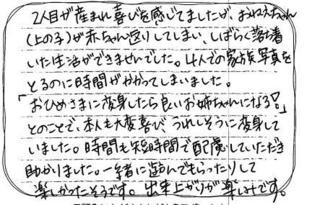 2人目が産まれ喜びを感じてましたが、おねえちゃん
(上の子)が赤ちゃん返りしてしまい、しばらく落ち着
いた生活ができませんでした。4人での家族写真を
とるのに時間がかかってしまいました。
「おひめさまに変身したら良いお姉ちゃんになる?」
とのことで、本人も大変喜び、うれしそうに変身して
いました。時間も短時間で配慮していただき
助かりました。一緒に遊んでもらったりして
楽しかったそうです。出来上がりが楽しみです。